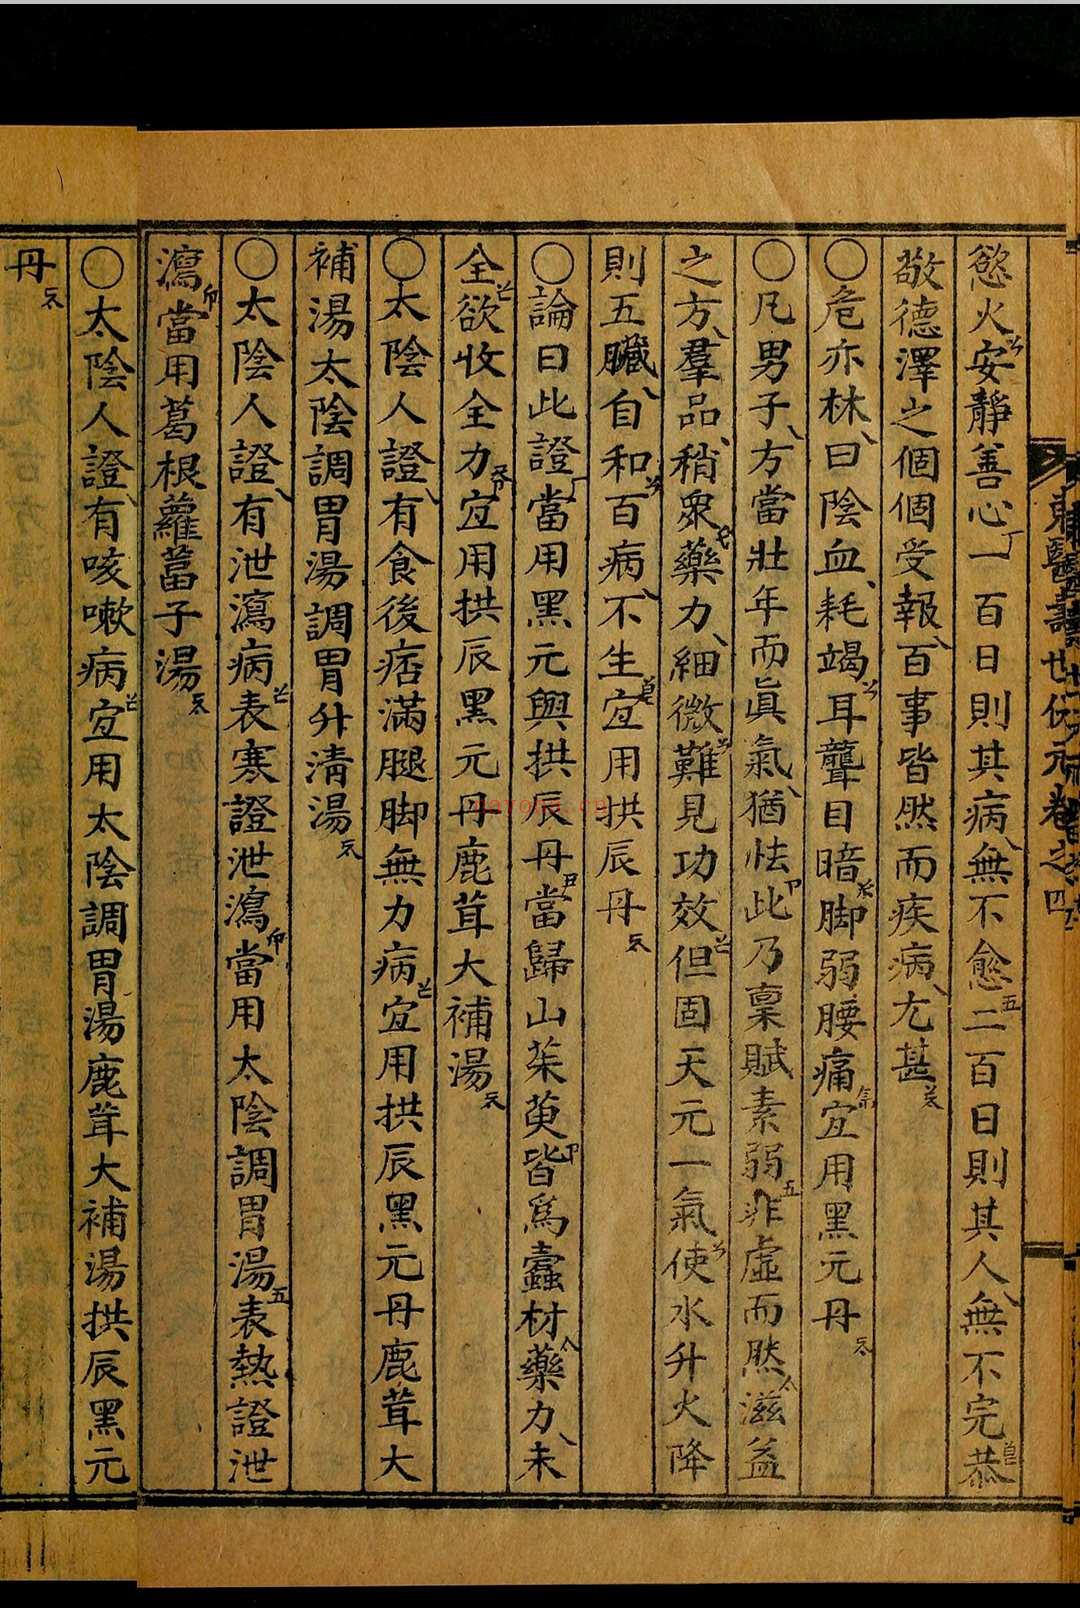 慾火安靜善心一百日則其病無不愈二百日則其人無不完恭
敬德澤之個個受報百事皆然而疾病尤甚
〇危亦林曰陰血耗竭耳聾目暗脚弱腰痛宜用黑元丹
〇凡男子方當壯年而眞氣猶怯此乃稟賦素弱非虛而然滋益
之方羣品稍衆藥力細微難見功效但固天元一氣使水升火降
則五臟自和百病不生宜用拱辰丹
〇論曰此證當用黑元與拱辰丹當歸山茱萸皆爲蠹材藥力未
全欲收全力宜用拱辰黑元丹鹿茸大補湯
〇太陰人證有食後痞滿腿脚無力病宜用拱辰黑元丹鹿茸大
補湯太陰調胃湯調胃升淸湯
〇太陰人證有泄瀉病表寒證泄瀉當用太陰調胃湯表熱證泄
瀉當用葛根蘿葍子湯
〇太陰人證有咳嗽病宜用太陰調胃湯鹿茸大補湯拱辰黑元
丹